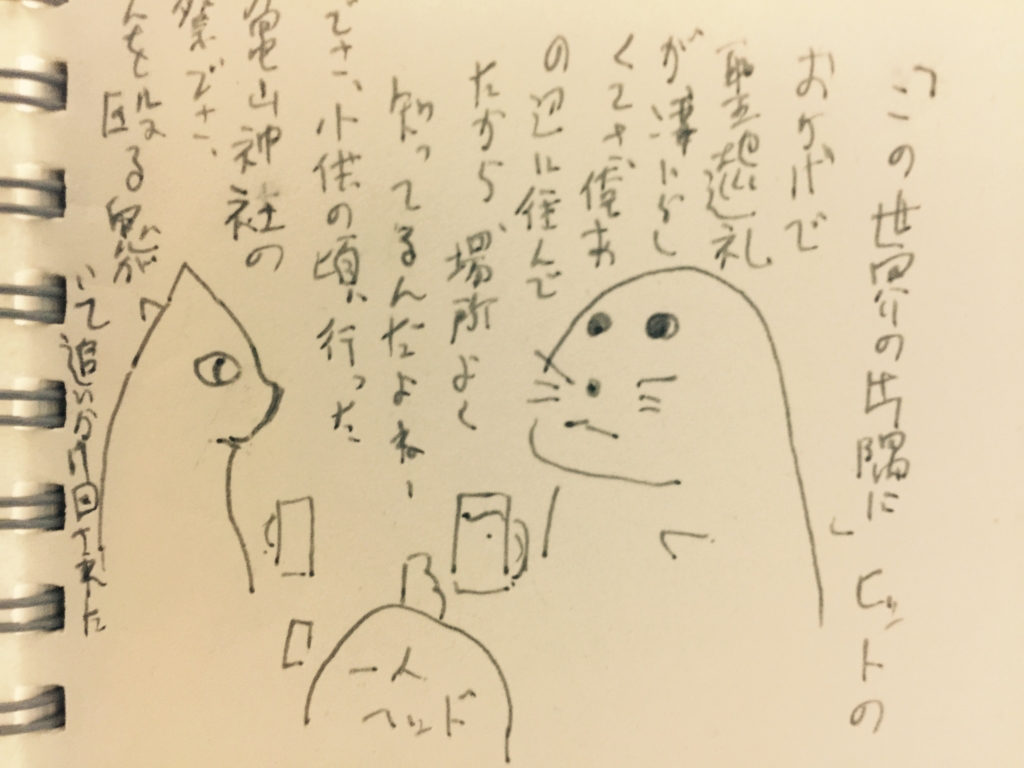 「この世界の片隅に」ヒットの
おかげで
聖地巡礼
が凄いらし
くてさ、俺あ
の辺に住んで
たから、場所よく
知ってるんだよねー
でさ、小供の頃、行った
亀山神社の
祭でさ、
を殴る鬼が
いて追いかけ回された
一人
ヘッド